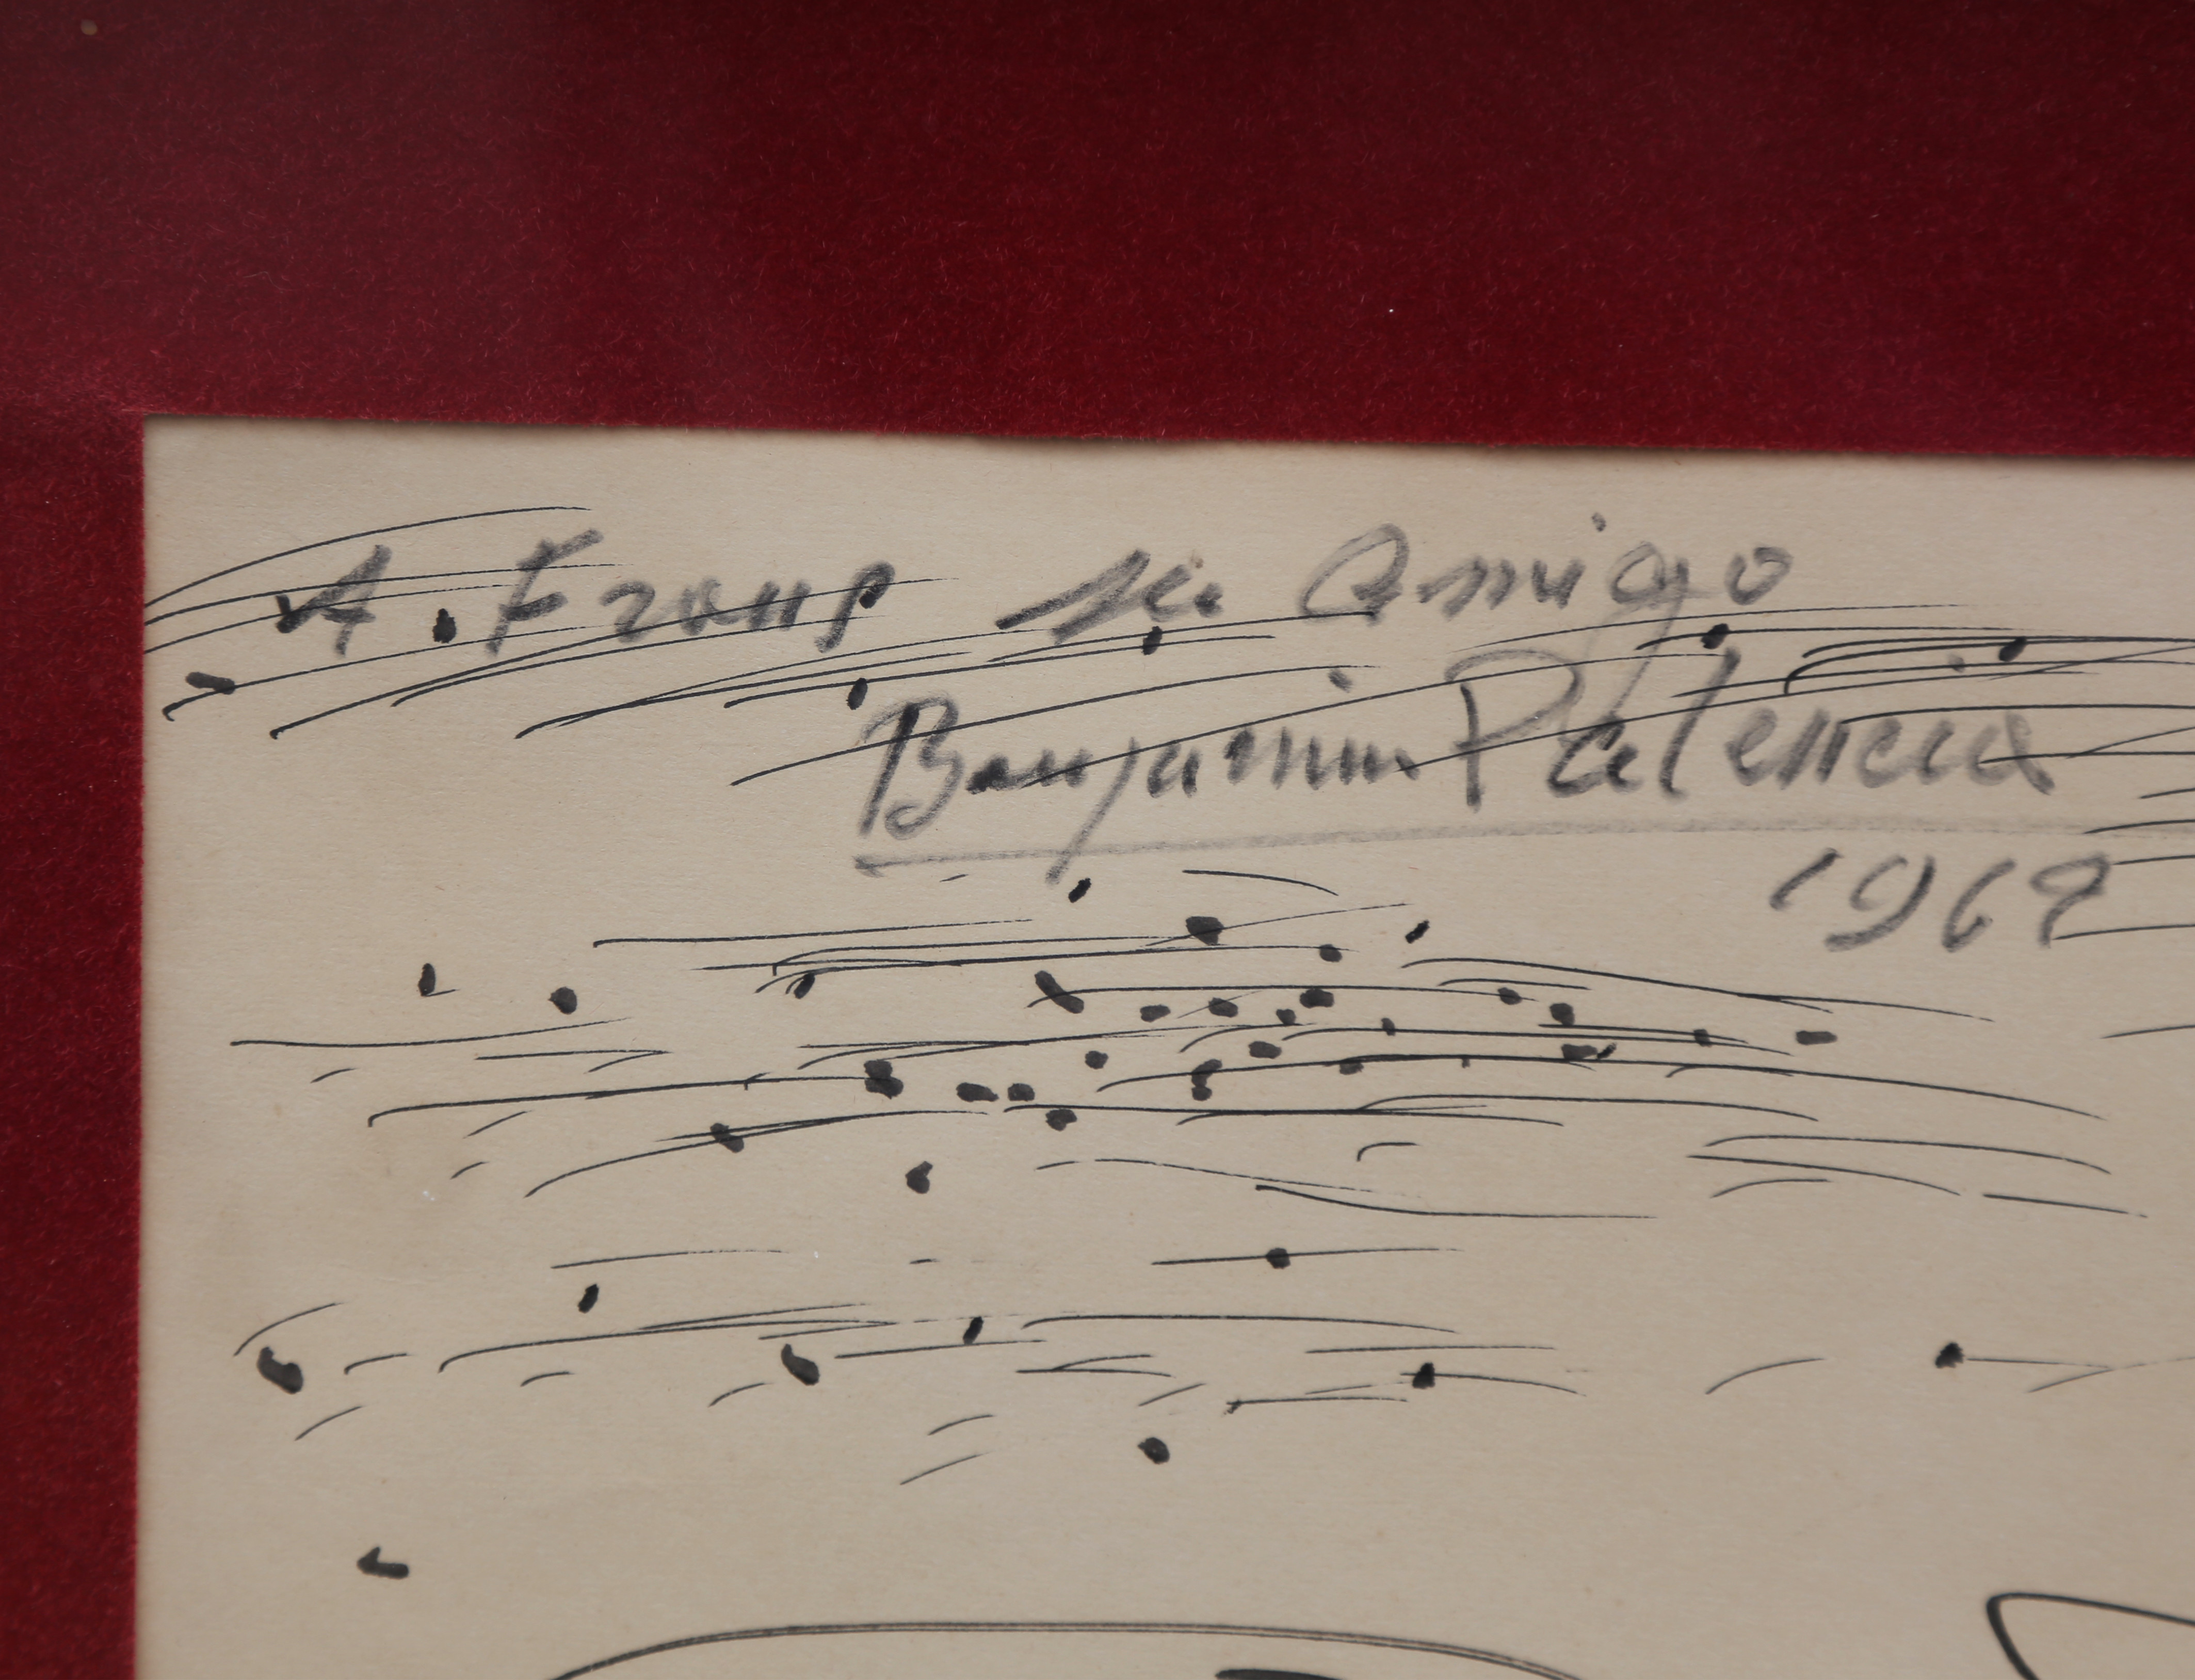 A. Frans su Amigo
Benjamin Palencia
196